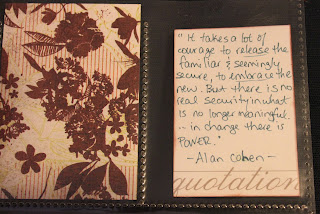 "It takes a lot of
courage to release the
familiar & seemingly
secure, to embrace the
new. But there is no
real security in what
is no longer meaningful.
... in change there is
POWER."
- Alan Cohen -
quotation